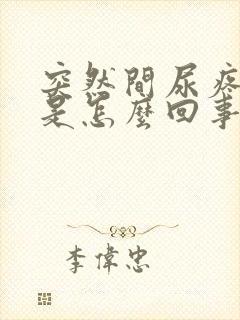 突然間尿疼
是怎麼回事
李偉忠